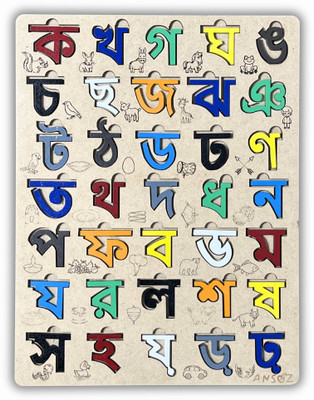 ক খ গ ঘ ঙ
চ ছ জ ঝ ঞ
ট ঠ ড ঢ ণ
ত থ দ ধ ন
প ফ ব ভ ম
য র ল শ ষ
স হ য় ড় ঢ়